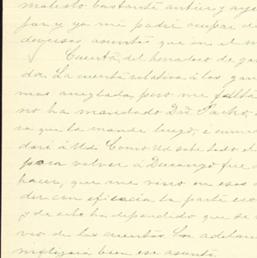 molesto bastante antier y aye
jar y ya me podré ocupar d
diversos asuntos que en el m
Cuenta del herradero de ga
da. La cuenta relativa a los gan
mas arreglada, pero me falta
no ha mandado Don Pacho,
ra que la mande luego, é inme
daré á Ud. Como Ud sabe todo el
para volver á Durango fue
hacer, que me vino en esos
der con eficacia la parte eco
y de esto ha dependido que se
vio de las cuentas. En adelan
bien ese asunto.